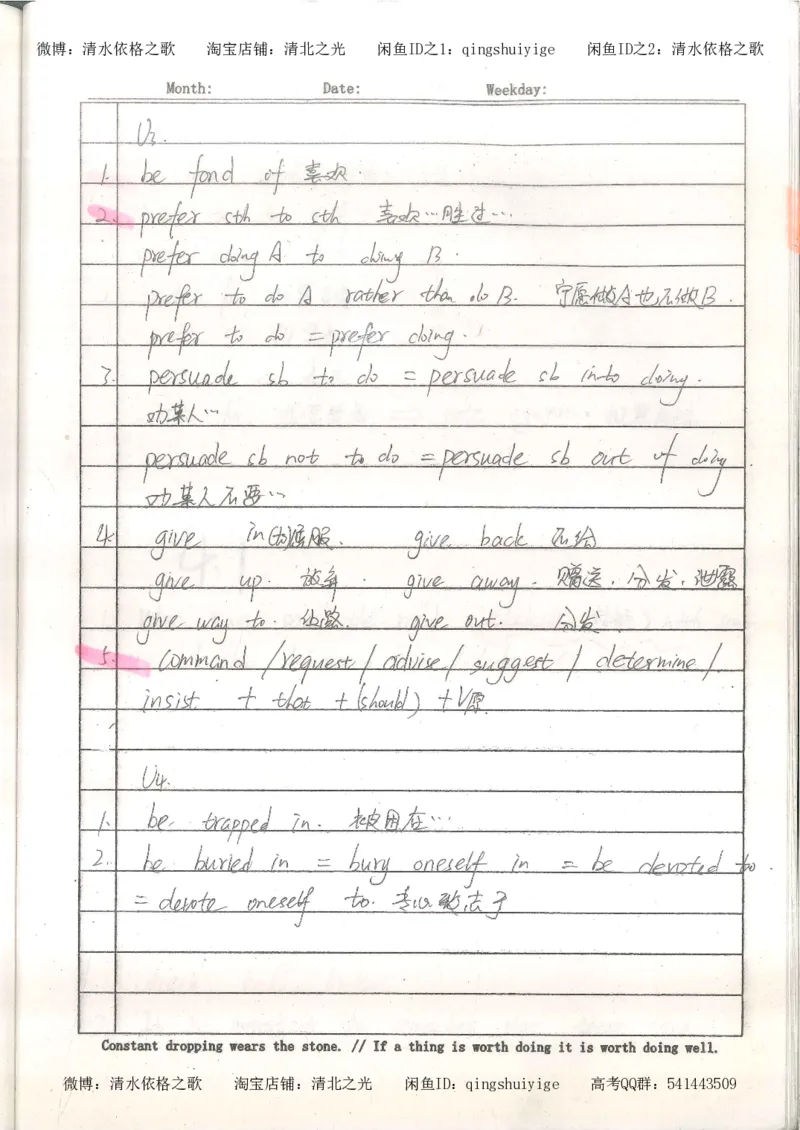 微博：清水依格之歌 淘宝店铺：清北之光 闲鱼ID之1：qingshuiyige 闲鱼ID之2：清水依格之歌
Month: Date: Weekday:
U3.
1. be fond of 喜欢.
2. prefer sth to sth 喜欢…胜过…
prefer doing A to doing B.
prefer to do A rather than do B. 宁愿做A也不做B.
prefer to do = prefer doing.
3. persuade sb to do = persuade sb into doing.
劝某人…
persuade sb not to do = persuade sb out of doing
劝某人不要…
4. give in (to) 屈服. give back
give up. 放弃. give away. 赠送, 分发, 泄露
give way to. 让路. give out. 分发
5. command / request / advise / suggest / determine /
insist + that + (should) + V原
U4.
1. be trapped in. 被困在…
2. be buried in = bury oneself in = be devoted to.
= devote oneself to. 专心致志于
Constant dropping wears the stone. // If a thing is worth doing it is worth doing well.
微博：清水依格之歌 淘宝店铺：清北之光 闲鱼ID：qingshuiyige 高考QQ群：541443509